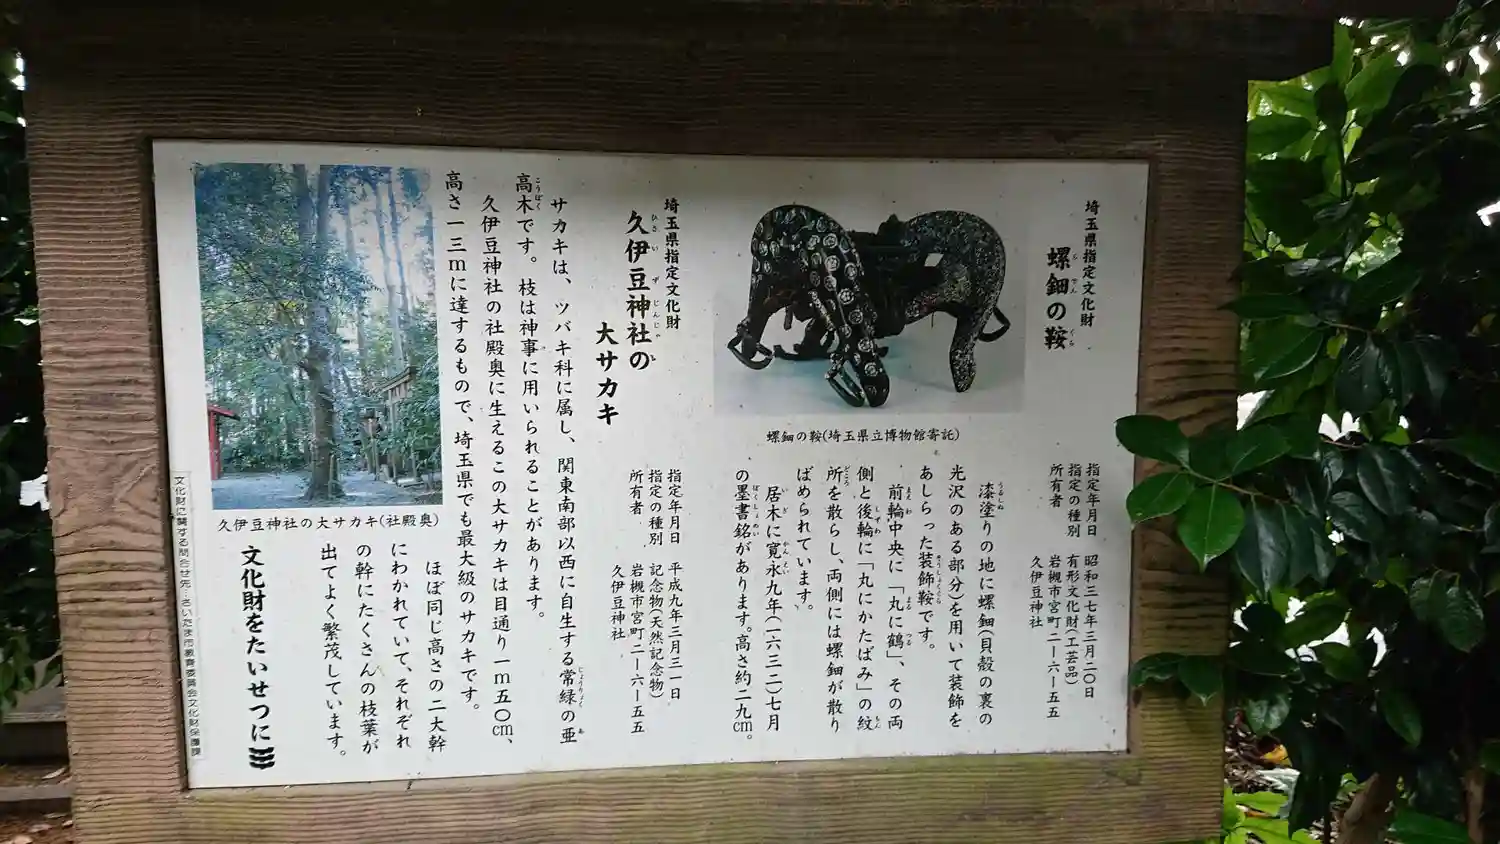 埼玉県指定文化財
螺鈿の鞍
指定年月日　昭和三七年三月二〇日
指定の種別　有形文化財(工芸品)
所有者　岩槻市宮町二ー六ー五五
久伊豆神社
漆塗りの地に螺鈿(貝殻の裏の
光沢のある部分)を用いて装飾を
あしらった装飾鞍です。
前輪中央に「丸に鶴」、その両
側と後輪に「丸にかたばみ」の紋
所を散らし、両側には螺鈿が散り
ばめられています。
居木に寛永九年(一六三二)七月
の墨書銘があります。高さ約二九㎝。
螺鈿の鞍(埼玉県立博物館寄託)
埼玉県指定文化財
久伊豆神社の
大サカキ
指定年月日　平成九年三月三一日
指定の種別　記念物(天然記念物)
所有者　岩槻市宮町二ー六ー五五
久伊豆神社
サカキは、ツバキ科に属し、関東南部以西に自生する常緑の亜
高木です。枝は神事に用いられることがあります。
久伊豆神社の社殿奥に生えるこの大サカキは目通り一m五〇㎝、
高さ一三mに達するもので、埼玉県でも最大級のサカキです。
ほぼ同じ高さの二大幹
にわかれていて、それぞれ
の幹にたくさんの枝葉が
出てよく繁茂しています。
久伊豆神社の大サカキ(社殿奥)
文化財をたいせつに
文化財に関する問合せ先…さいたま市教育委員会文化財保護課